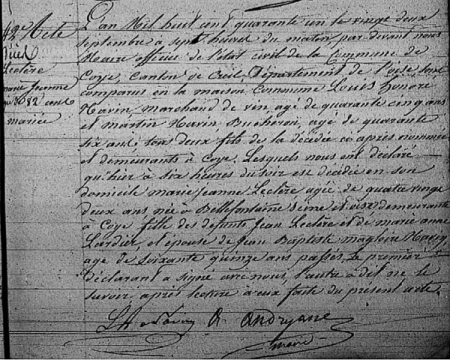 Acte
L'an Mil huit cent quarante un le vingt deux
septembre à sept heures du matin par devant nous
Maire officier de l'etat civil de la Commune de
Coye, Canton de Creil Département de l'oise, sont
comparus en la maison Commune Louis honoré
Havin, marchand de vin agé de quarante cinq ans
et martin Havin, Bucheron, agé de quarante
six ans, tous deux fils de la décédée ci après nommée
et demeurants à Coye. Lesquels nous ont déclaré
qu'hier à six heures du soir est décédée en son
domicile marie jeanne Leclère agée de quatre vingt
deux ans, née à Bellefontaine Seine et oise demeurante
à Coye fille des defunts Jean Leclère et de marie anne
Lardier et épouse de Jean Baptiste Havin
age de soixante quinze ans passés. Le premier
déclarant a signé avec nous l'autre a dit ne le
savoir, après lecture à eux faite du présent acte.
Andryane
maire
Leclère
femme
82 ans
mariée